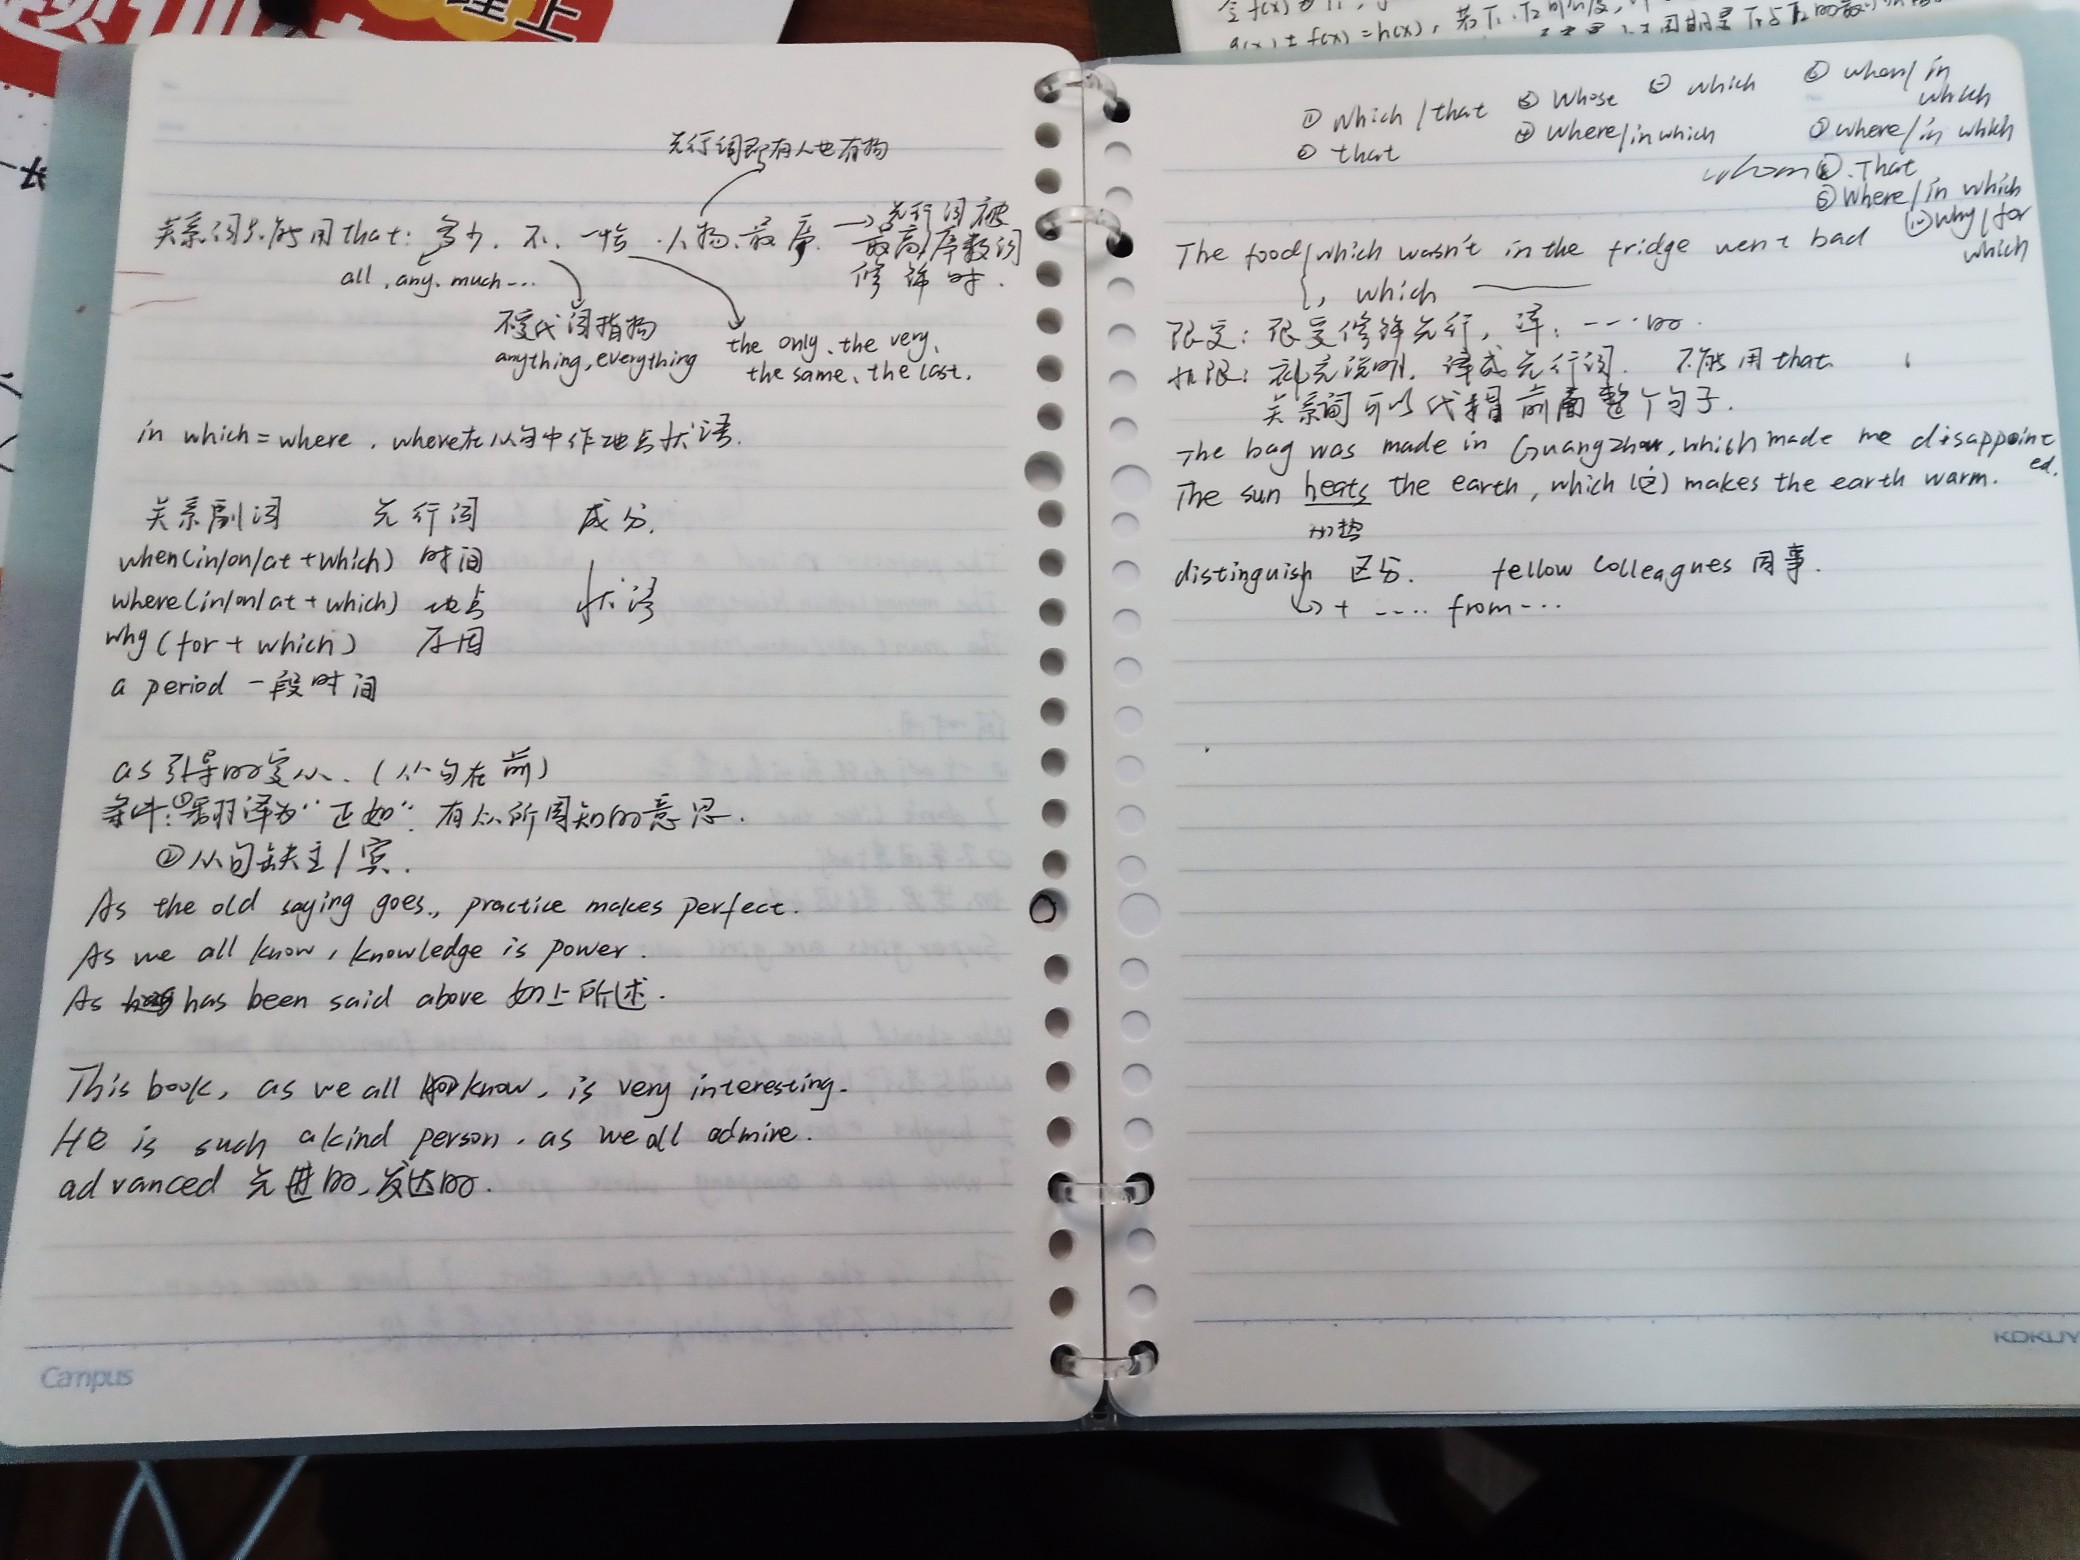 理上
先行词即有人也有物
关系词只能用that: 多少、不、一恰、人物、最序 → 先行词被
最高/序数词
修饰时.
all, any, much...
不定代词指物
anything, everything
the only, the very,
the same, the last.
in which = where, where在从句中作地点状语.
关系副词 先行词 成分.
when(in/on/at + which) 时间
where(in/on/at + which) 地点 状语
why (for + which) 原因
a period 一段时间
as引导的定从. (从句在前)
条件: ①翻译为"正如". 有众所周知的意思.
②从句缺主/宾.
As the old saying goes, practice makes perfect.
As we all know, knowledge is power.
As has been said above 如上所述.
This book, as we all know, is very interesting.
He is such a kind person, as we all admire.
advanced 先进的,发达的.
Campus
① which / that
② that
③ whose
④ where/in which
⑤ which
⑥ when/ in
which
⑦ where/ in which
whom ⑧. That
⑨ Where/ in which
⑩ why/for
which
The food which wasn't in the fridge went bad
, which
限定: 限定修饰先行, 译: ……的.
非限: 补充说明. 译成先行词. 不能用that.
关系词可以代指前面整个句子.
The bag was made in Guangzhou, which made me disappoint
ed.
The sun heats the earth, which (这) makes the earth warm.
加热
distinguish 区分. fellow colleagues 同事.
↳ + .... from...
KOKUY